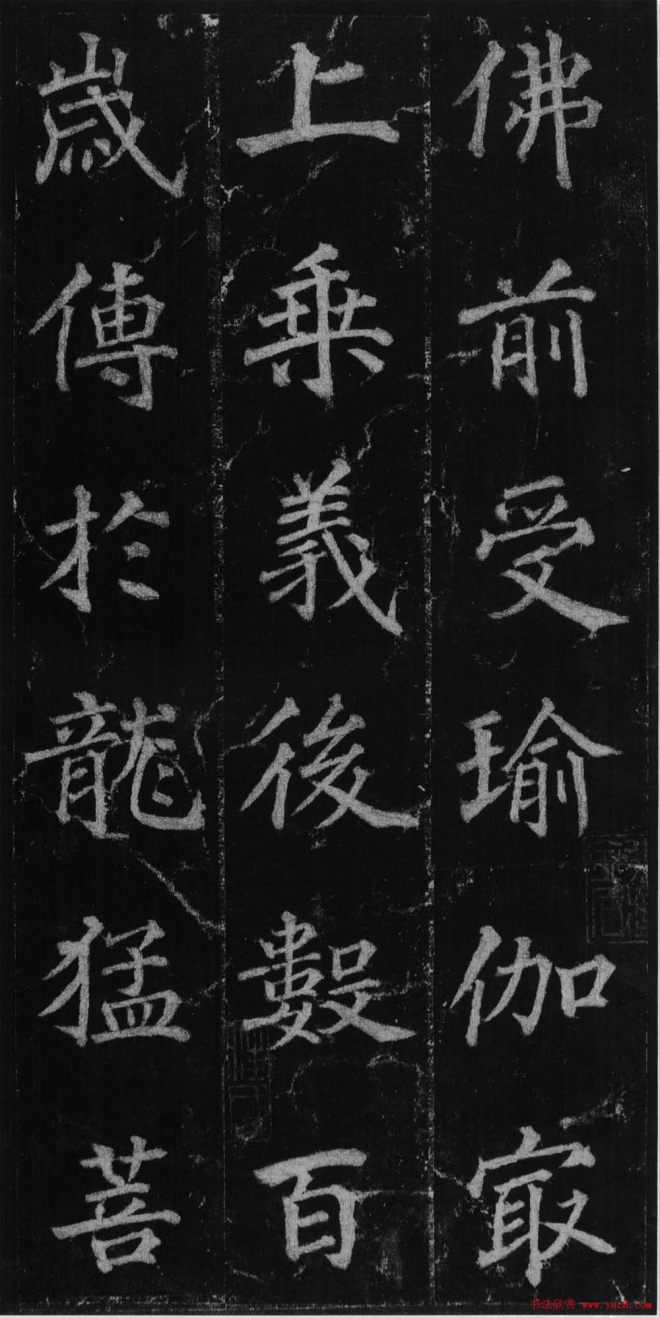 佛前受瑜伽㝡
上乗義後數百
嵗傳於龍猛菩
书法欣赏 www.yac8.com